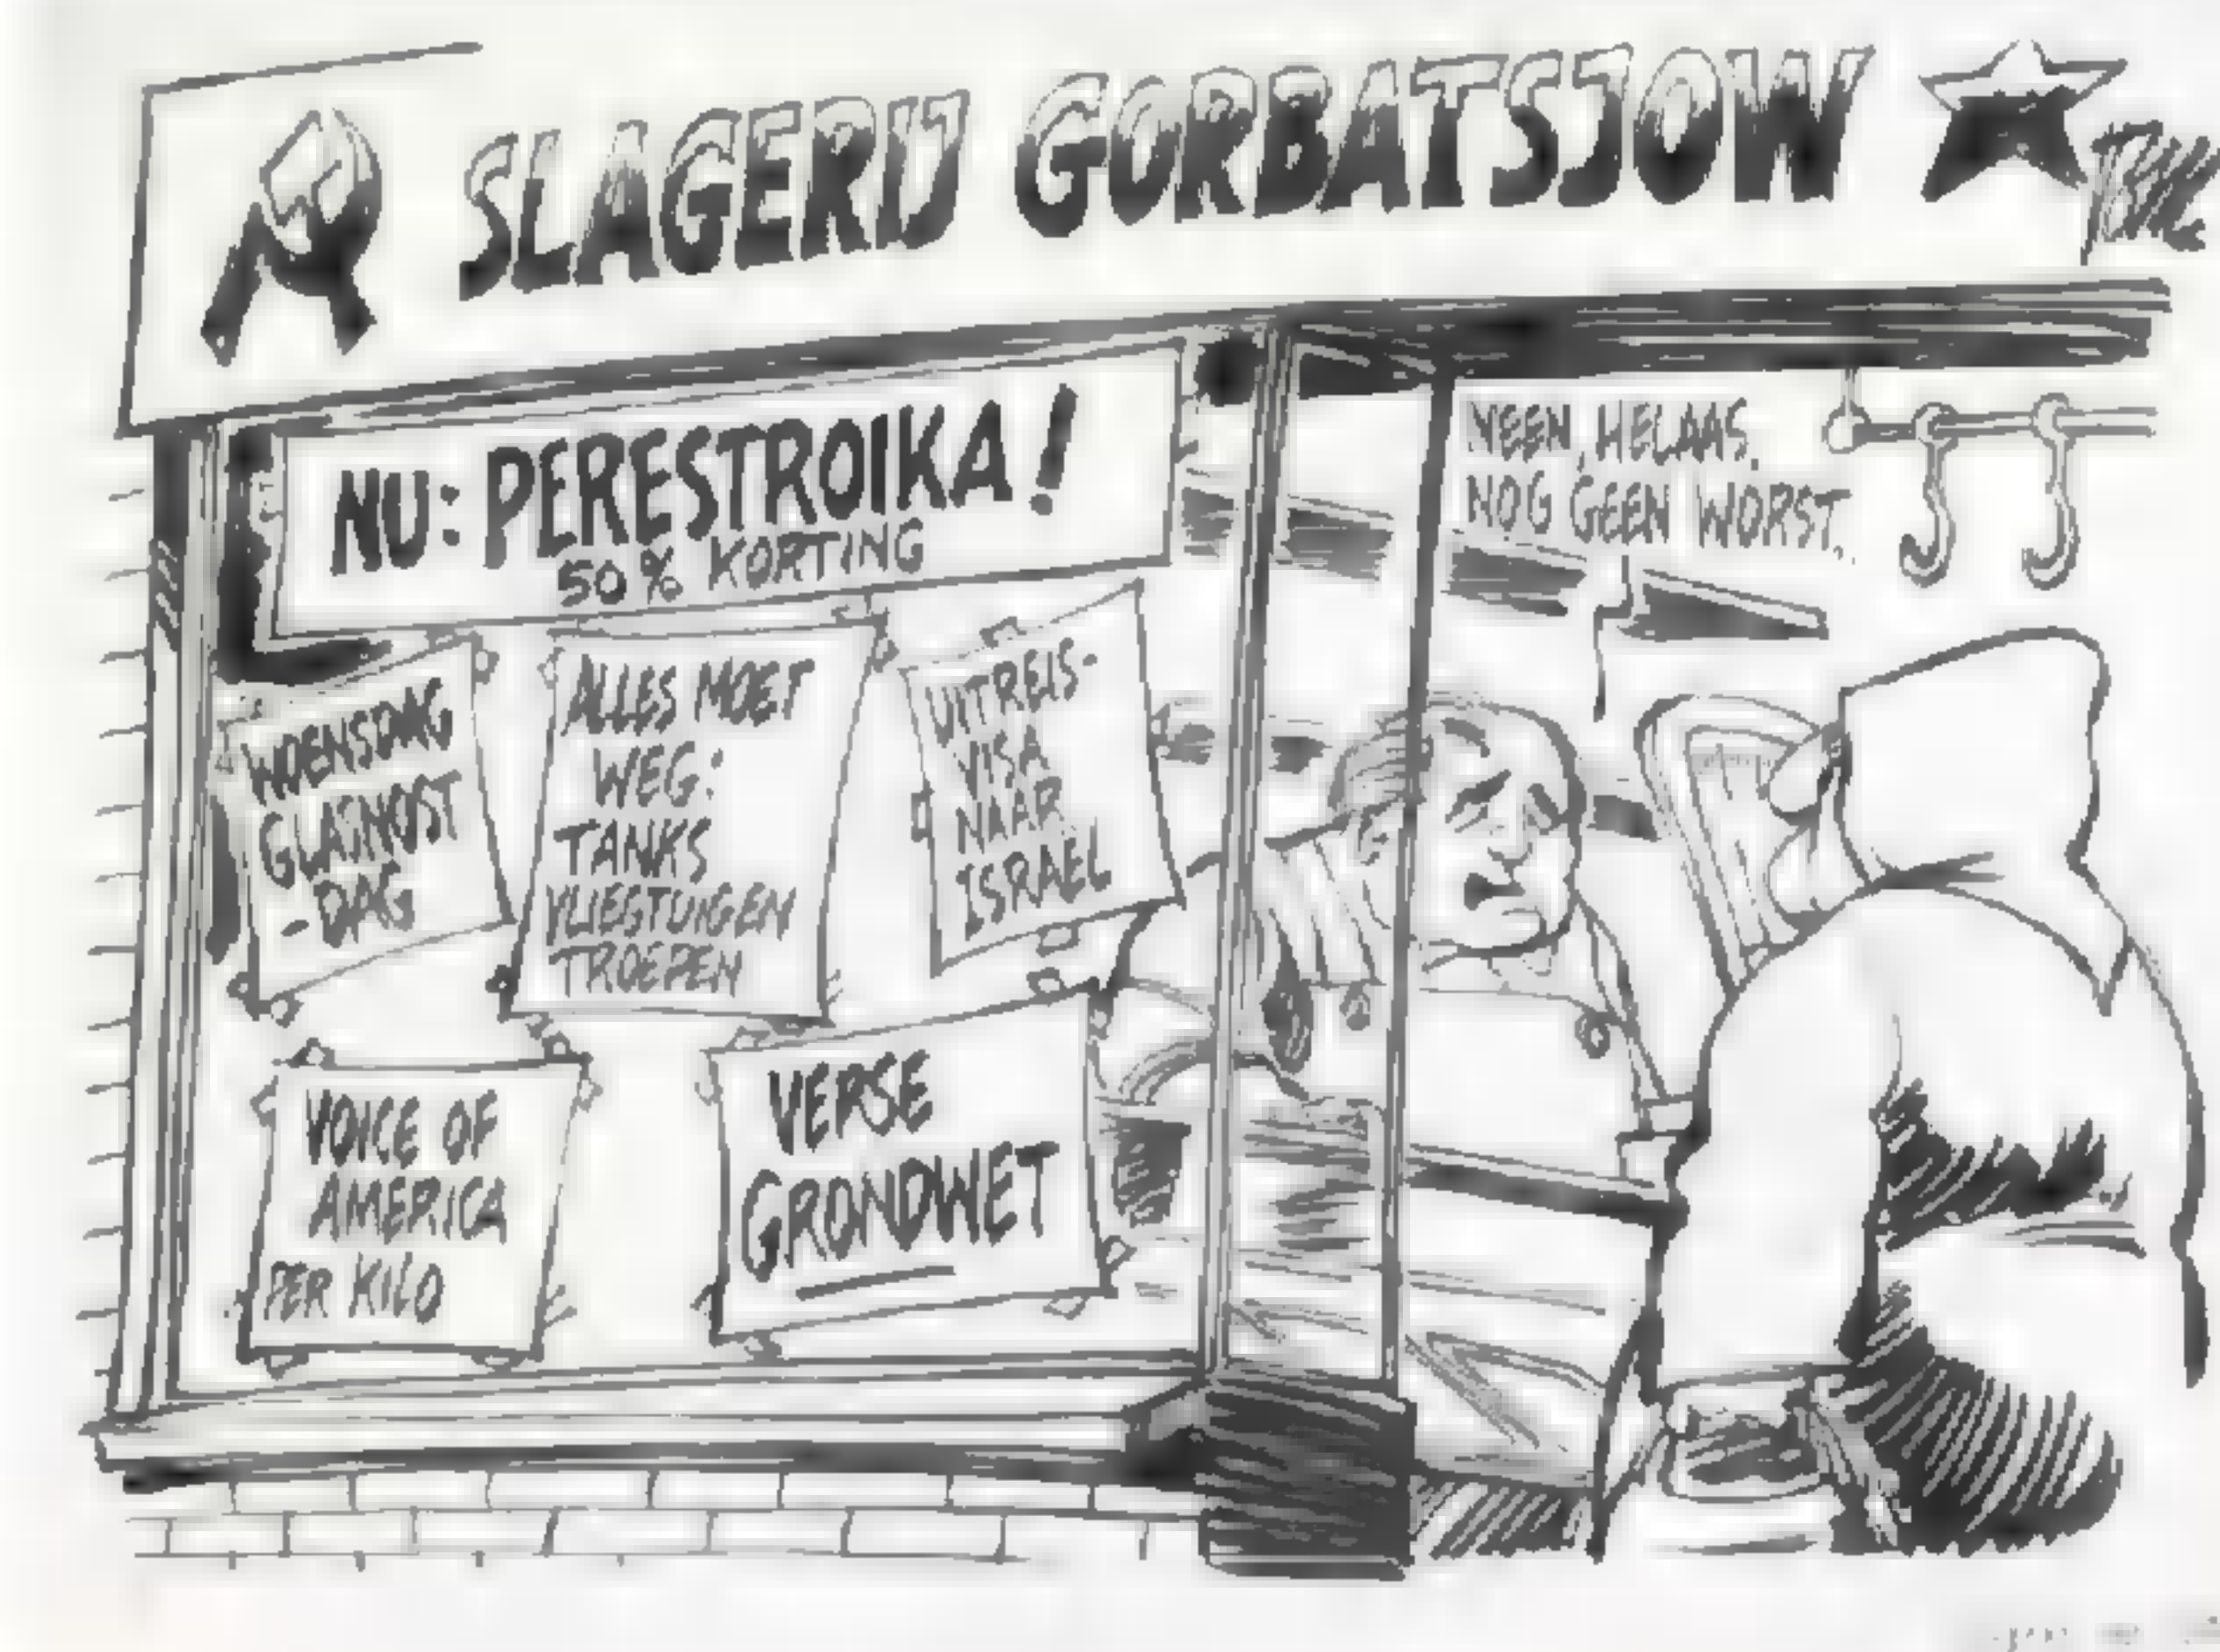 SLAGERIJ GORBATSJOW
NU: PERESTROIKA!
50% KORTING
NEEN, HELAAS.
NOG GEEN WORST.
WOENSDAG
GLASNOST
-DAG
ALLES MOET
WEG:
TANKS
VLIEGTUIGEN
TROEPEN
UITREIS-
VISA
NAAR
ISRAEL
VOICE OF
AMERICA
PER KILO
VERSE
GRONDWET